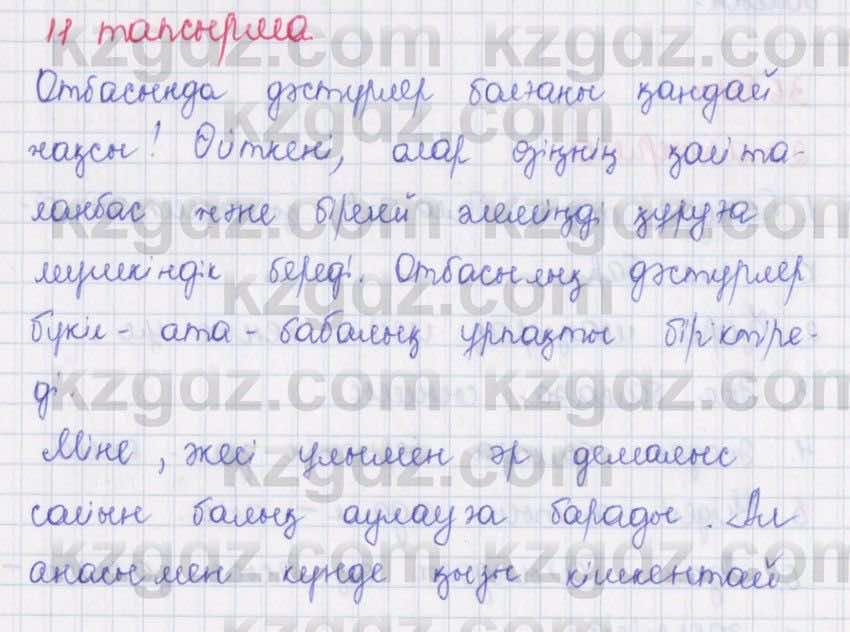 11 тапсырма
Отбасында дәстүрлер болғаны қандай
жақсы! Өйткені, олар өзіңнің қайта-
ланбас және бірегей әлеміңді құруға
мүмкіндік береді. Отбасылық дәстүрлер
бүкіл-ата-бабалық ұрпақты біріктіре-
ді.
Міне, әкесі ұлымен әр демалыс
сайын балық аулауға барады. Ал
анасы мен күнде қызы кішкентай
kzgdz.com